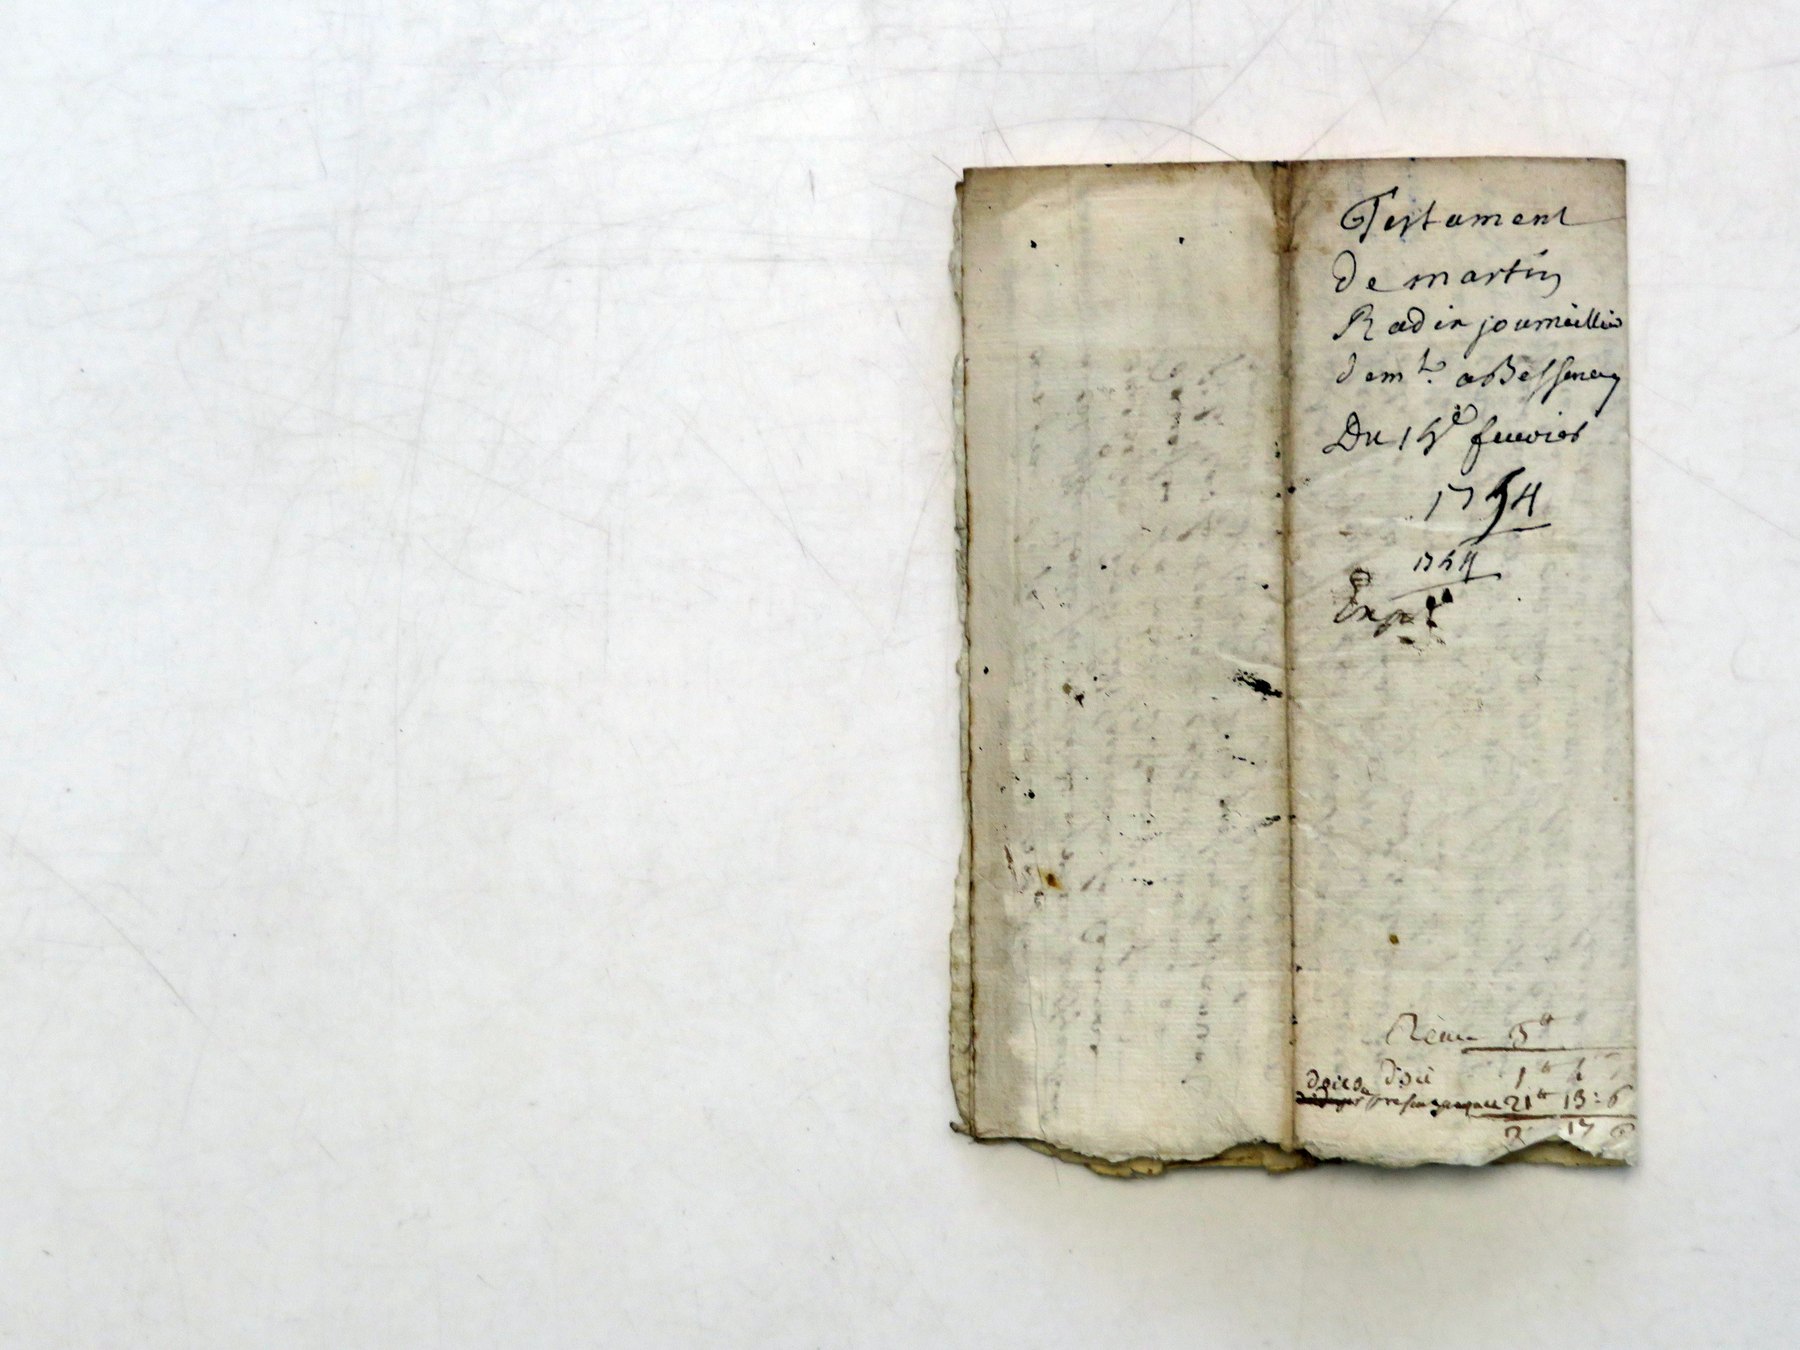 Testament
de martin
Radix journallier
dem.t a Bessenay
Du 15e fevrier
1754
1754
Exp.é
Recu 5tt
dixi 1tt 4
21tt 13:6
2 17 6